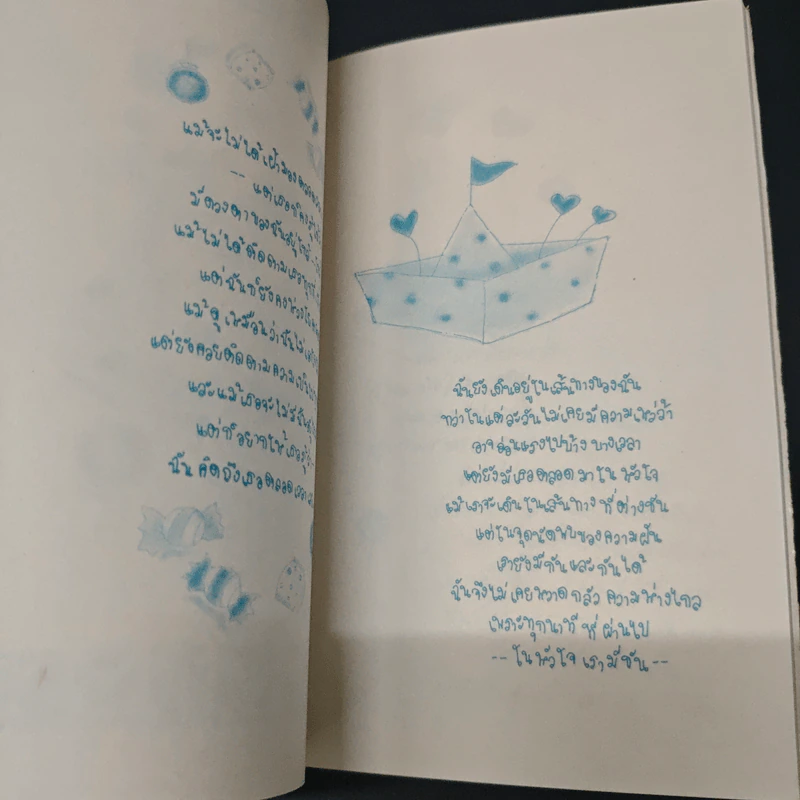 แม้จะไม่ได้เฝ้ามองตลอด
-- แต่เธอก็คง
มีดวงตาของฉันอยู่ใกล้ --
แม้ไม่ได้ติดตามเธอทุกที่
แต่ฉันก็ยังคงห่วงใย
แม้ดูเหมือนว่าฉันไม่
แต่ยังคอยติดตามความเป็น
และแม้เธอจะไม่มีฉัน
แต่ก็อยากให้เธอรู้
ฉันคิดถึงเธอตลอดเวลา
ฉันยังเดินอยู่ในเส้นทางของฉัน
ทว่าในแต่ละวันไม่เคยมีความเหว่ว้า
อาจอ่อนแรงไปบ้าง บางเวลา
แต่ยังมีเธอตลอดมาใน หัวใจ
แม้เราจะเดินในเส้นทาง ที่ต่างขั้น
แต่ในจุดนัดพบของความฝัน
เรายังมีกันและกันได้
ฉันจึงไม่เคยหวาดกลัว ความห่างไกล
เพราะทุกนาที ที่ผ่านไป
-- ในหัวใจ เรามีกัน --